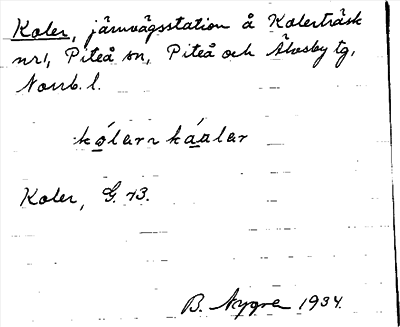 Koler, järnvägsstation å Kolerträsk
nr 1, Piteå sn, Piteå och Älvsby tg,
Norrb. l.
kólar ~ káalar
Koler, G. 73.
B. Nygre 1934.